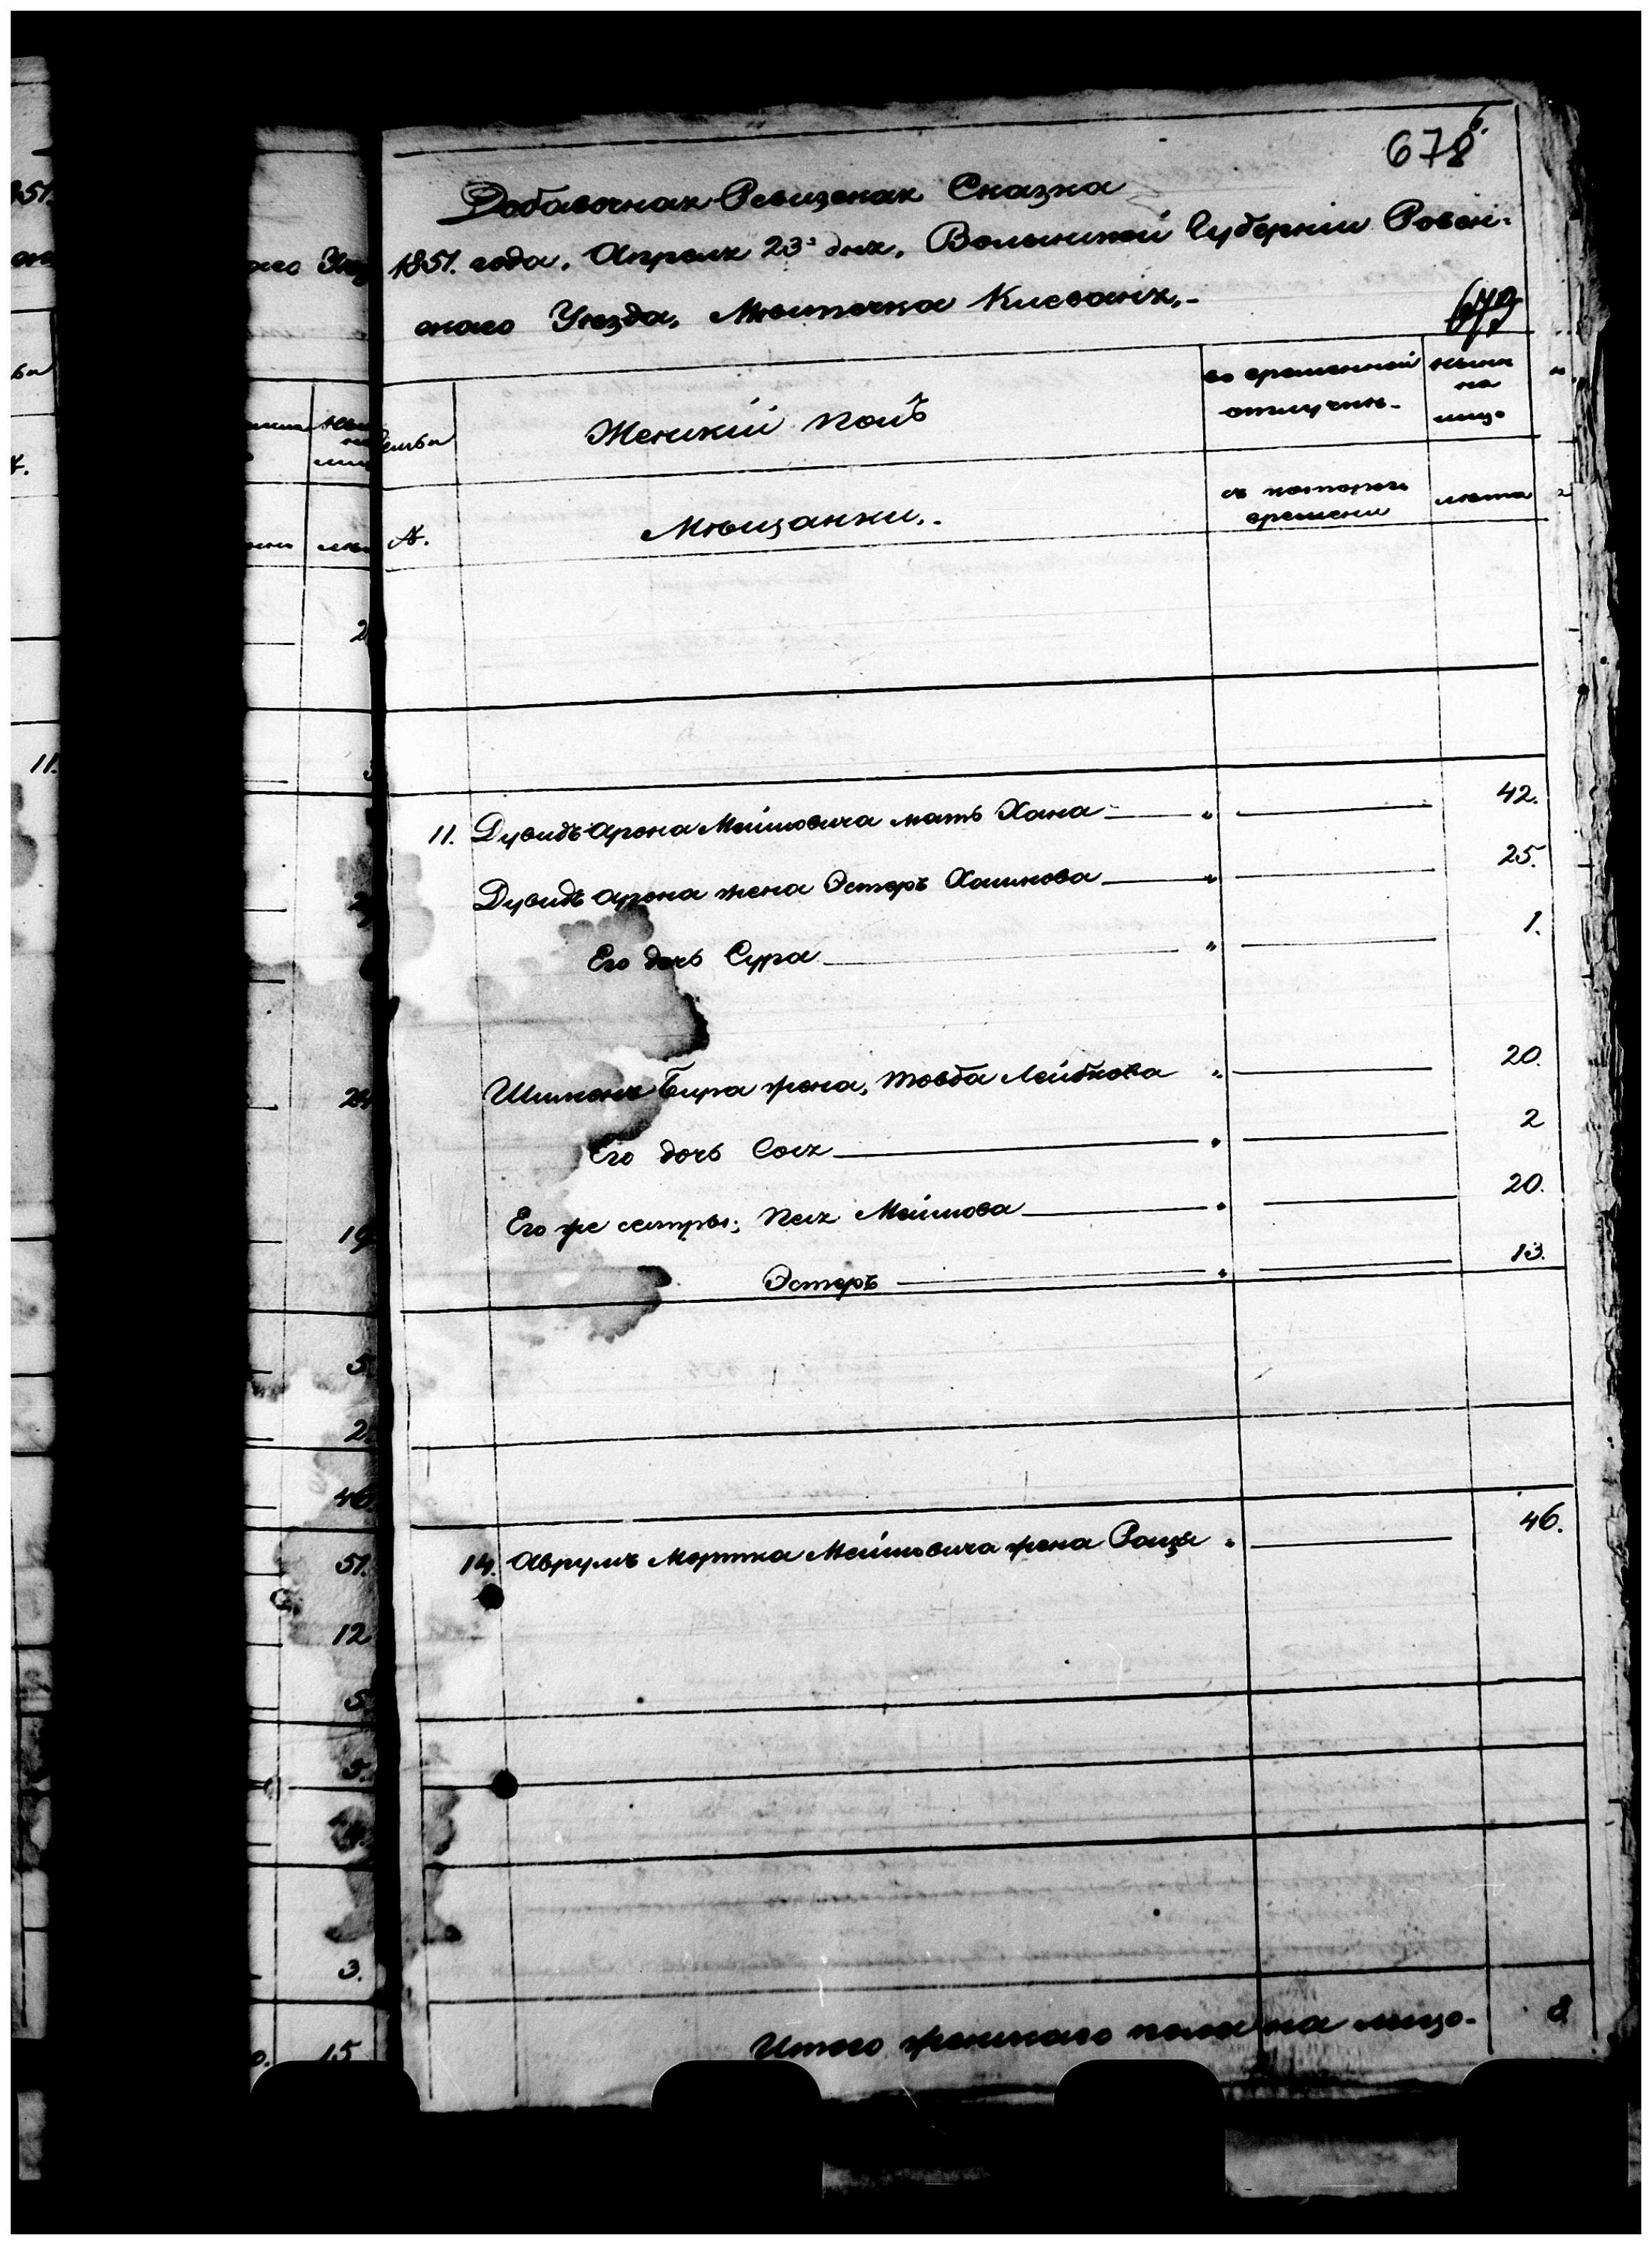 678
6.
Добавочная Ревизская Сказка
1851. года, Апреля 23го дня, Волынской Губерніи Ровен-
скаго Уѣзда, Мѣстечка Клеваня.-
679
Семья
Женскій полъ
во временной
отлучкѣ.
нынѣ
на
лицо
№.
Мѣщанки.
съ котораго
времени
лѣта
11. Дувидъ Арона Мейшовича мать Хана " 42.
Дувидъ Арона жена Эстеръ Хаимова " 25.
Его дочь Сура " 1.
Шимонъ Бира жена, Товба Лейбкова " 20.
Его дочь Сося " 2
Его же сестры; Песя Мейшова " 20.
Эстеръ " 13.
14. Аврумъ Мортка Мейшовича жена Раца " 46.
Итого женскаго пола на лицо. 8